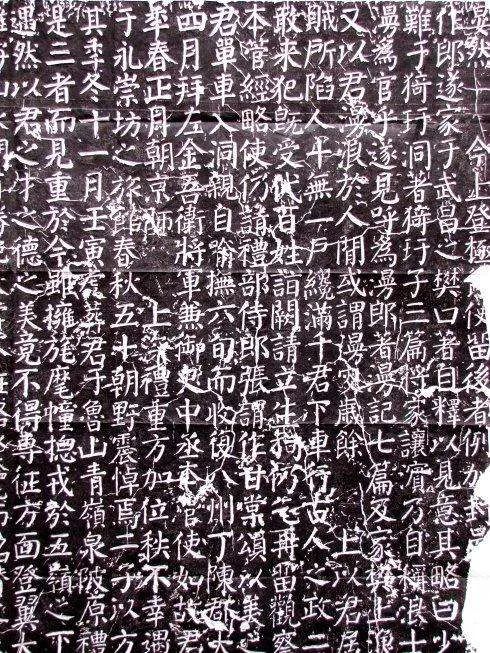 今上登極 留後者例加封
作郎遂家于武昌之樊口著自釋以見意其略曰少
難于猗玗洞著猗玗子三篇將家讓賓乃自稱浪士
漫為官乎遂見呼為漫郎著漫記七篇及家樊上漁
又以君漫浪於人間或謂漫叟歲餘 上以君居
賊所陷人十無一戶纔滿千君下車行古人之政二
敢来犯既受代百姓詣闕請立生祠仍乞再留觀察
本管經略使仍請禮部侍郎張謂作甘棠頌以美
君單車入洞親自喻撫六旬而收復八州丁陳郡太
四月拜左金吾衛將軍兼御史中丞本管使如故君
年春正月朝京師 上深禮重方加位秩不幸遇
于永崇坊之旅館春秋五十朝野震悼焉二子以方
其季冬十一月壬寅虔葬君于魯山青嶺泉陂原禮
是二者而見重於今雖擁旄麾幢捴戎於五嶺之下
遇然以君之才之德之美竟不得專征方面登翼太